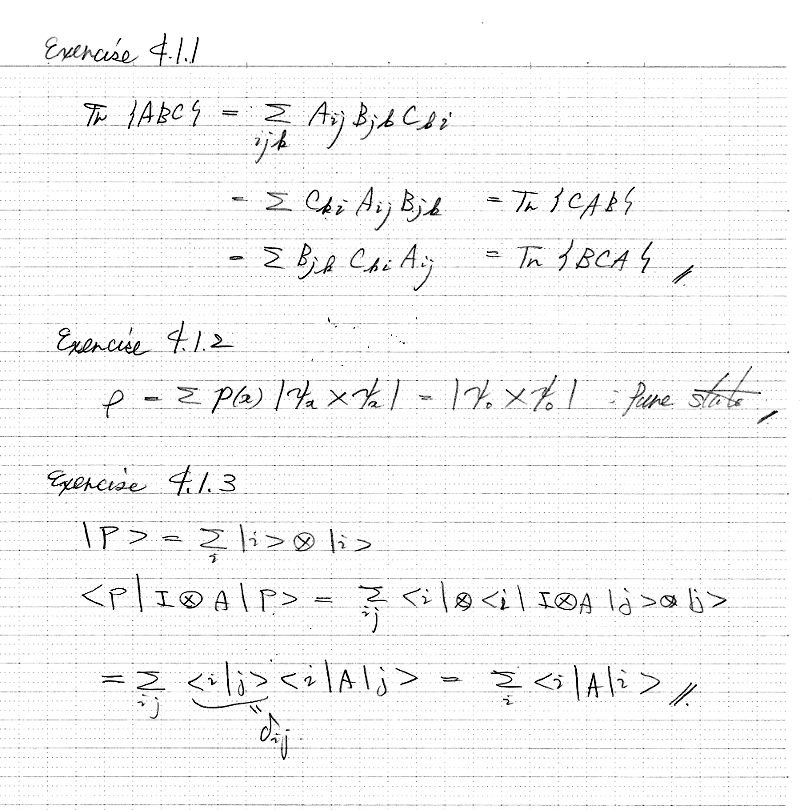 Exercise 4.1.1
Tr {ABC} = Σ_{ijk} A_{ij} B_{jk} C_{ki}
= Σ C_{ki} A_{ij} B_{jk} = Tr {CAB}
= Σ B_{jk} C_{ki} A_{ij} = Tr {BCA} //
Exercise 4.1.2
ρ = Σ p(x) |ψ_x><ψ_x| = |ψ_0><ψ_0| : Pure state //
Exercise 4.1.3
|Γ> = Σ_i |i> ⊗ |i>
<Γ| I ⊗ A |Γ> = Σ_{ij} <i| ⊗ <i| I ⊗ A |j> ⊗ |j>
= Σ_{ij} <i|j> <i|A|j> = Σ_i <i|A|i> //
" δ_{ij}